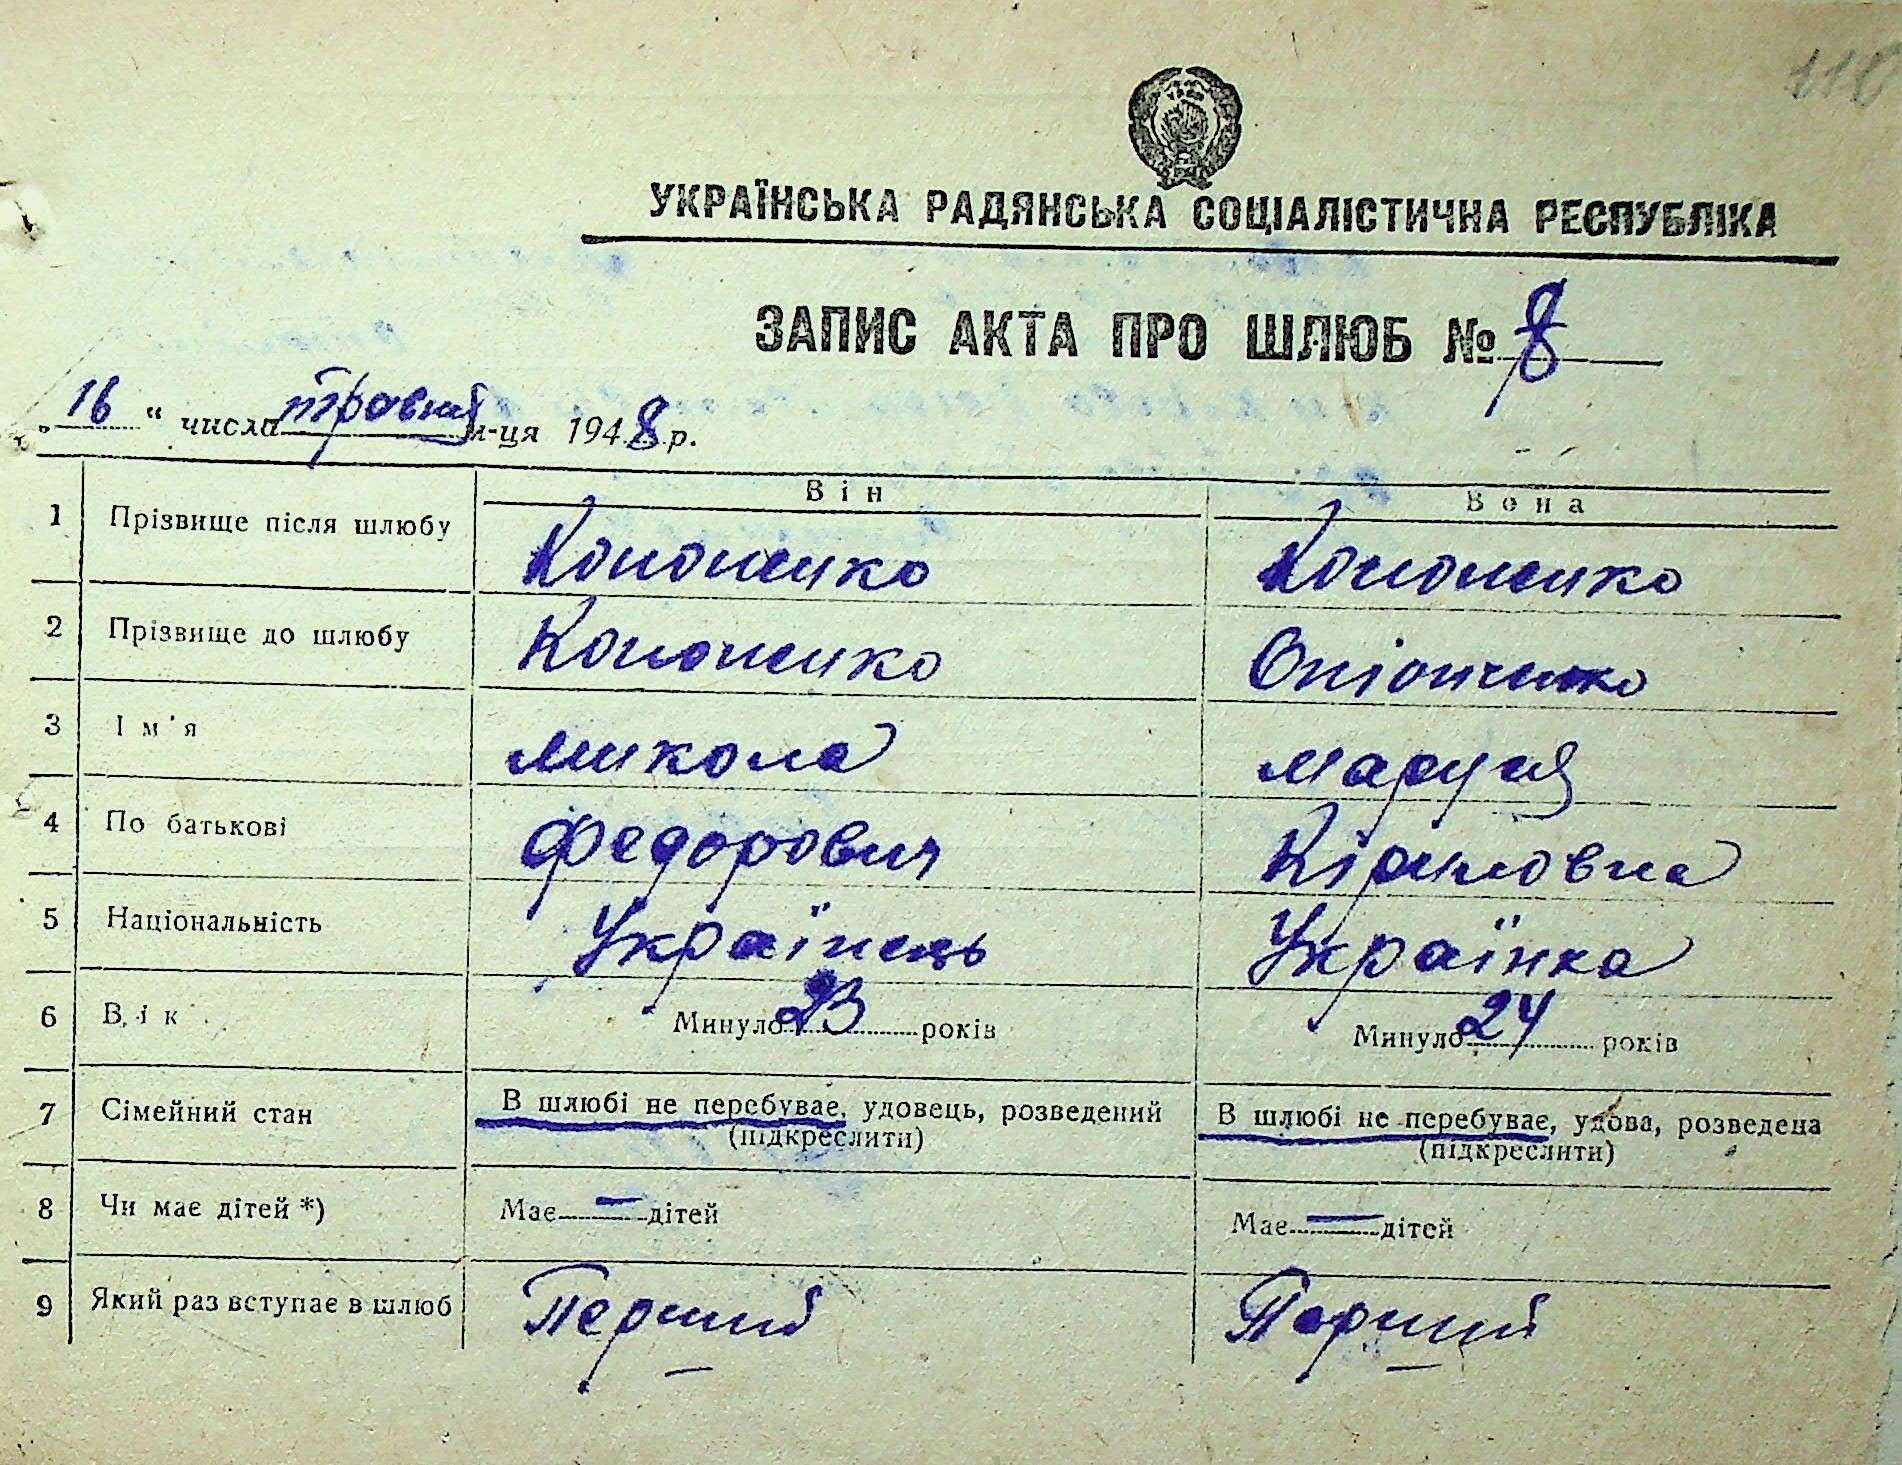 118
УКРАЇНСЬКА РАДЯНСЬКА СОЦІАЛІСТИЧНА РЕСПУБЛІКА
ЗАПИС АКТА ПРО ШЛЮБ № 8
„ 16 “ числа травня м-ця 1948 р.
Він Вона
1 Прізвище після шлюбу Кононенко Кононенко
2 Прізвище до шлюбу Кононенко Оніонченко
3 Ім'я Микола Маруся
4 По батькові Федорович Кіриловна
5 Національність Українець Українка
6 Вік Минуло 23 років Минуло 24 років
7 Сімейний стан В шлюбі не перебуває, удовець, розведений В шлюбі не перебуває, удова, розведена
(підкреслити) (підкреслити)
8 Чи має дітей *) Має — дітей Має — дітей
9 Який раз вступає в шлюб Перший Перший